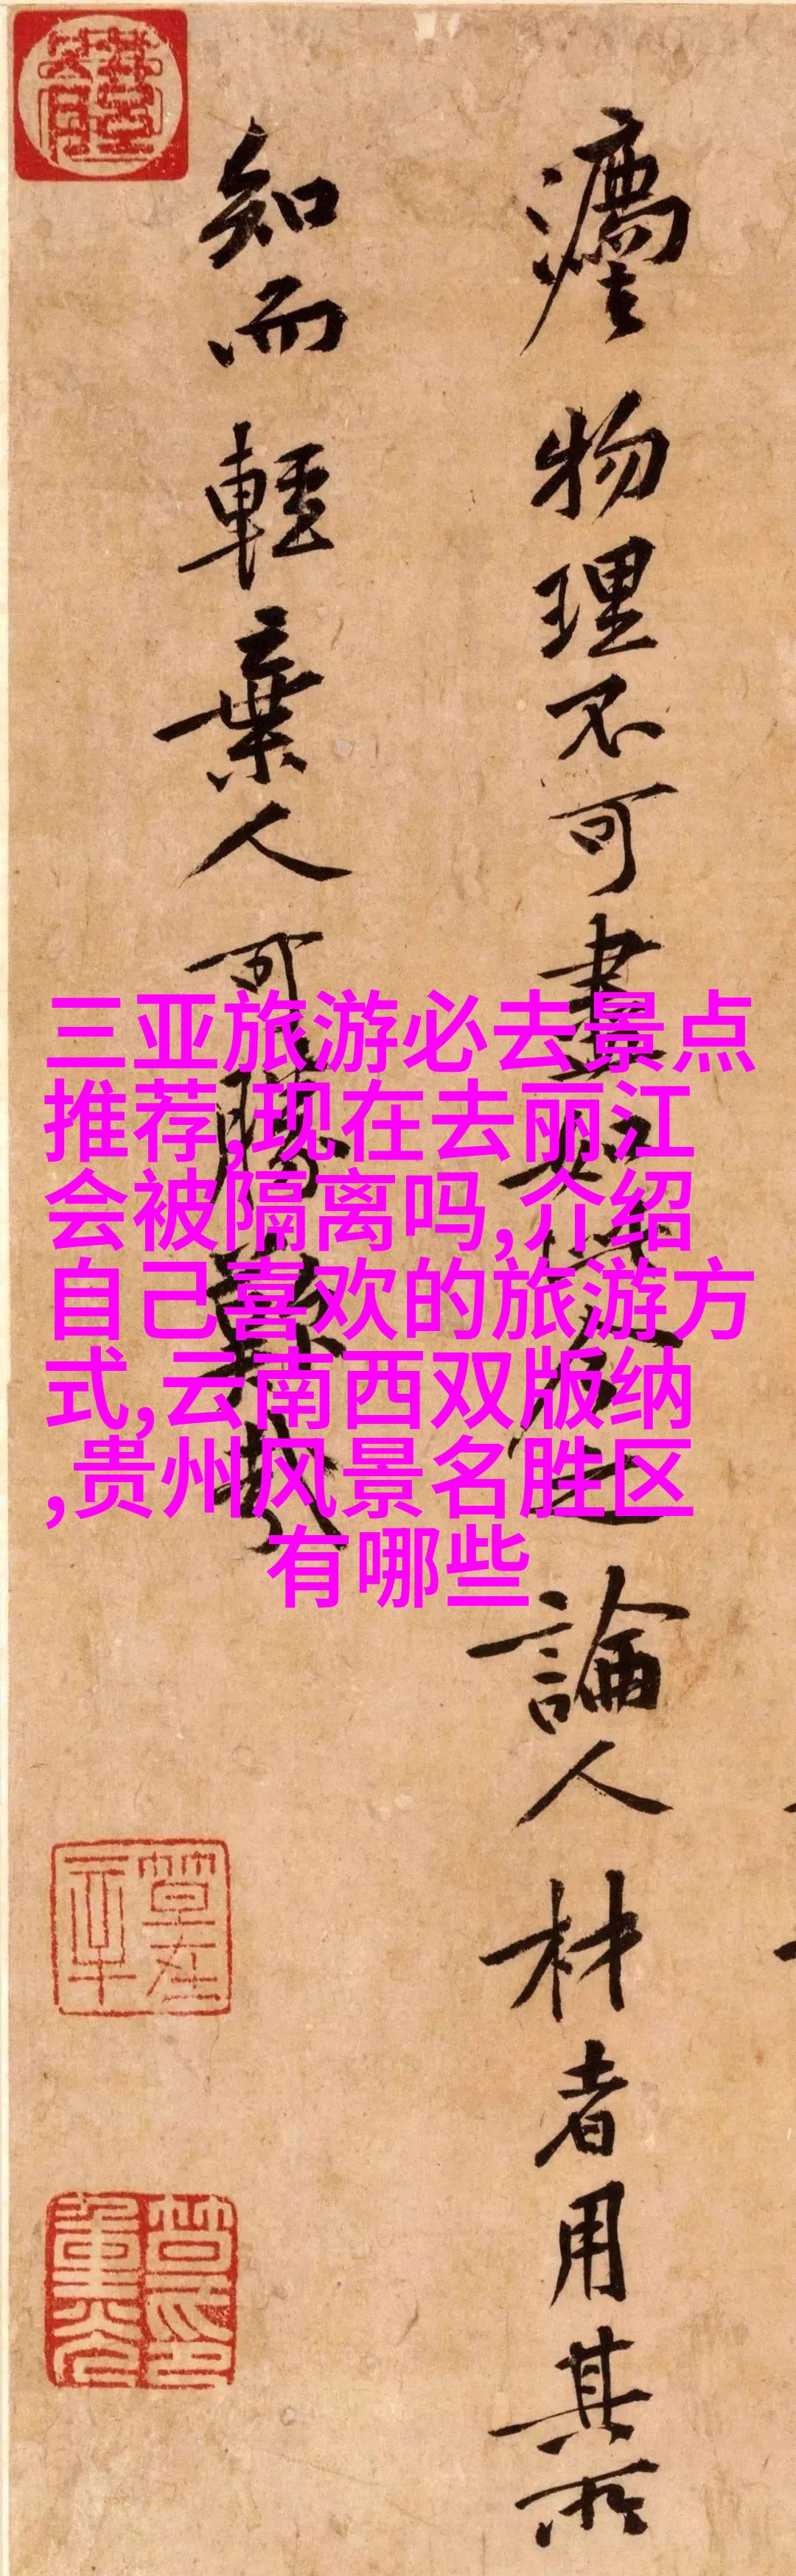 瘺物理不可盡知者及也論人材者用其所
知而輕棄人可勝歎哉
三亚旅游必去景点
推荐,现在去丽江
会被隔离吗,介绍
自己喜欢的旅游方
式,云南西双版纳
,贵州风景名胜区
有哪些